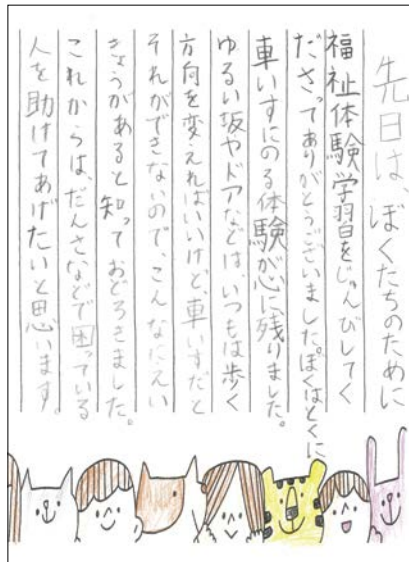 先日は、ぼくたちのために
福祉体験学習をじゅんびしてく
ださってありがとうございました。ぼくはとくに
車いすにのる体験が心に残りました。
ゆるい坂やドアなどは、いつもは歩く
方向を変えればいいけど、車いすだと
それができないので、こんなにえい
きょうがあると知っておどろきました。
これからは、だんさなどで困っている
人を助けてあげたいと思います。